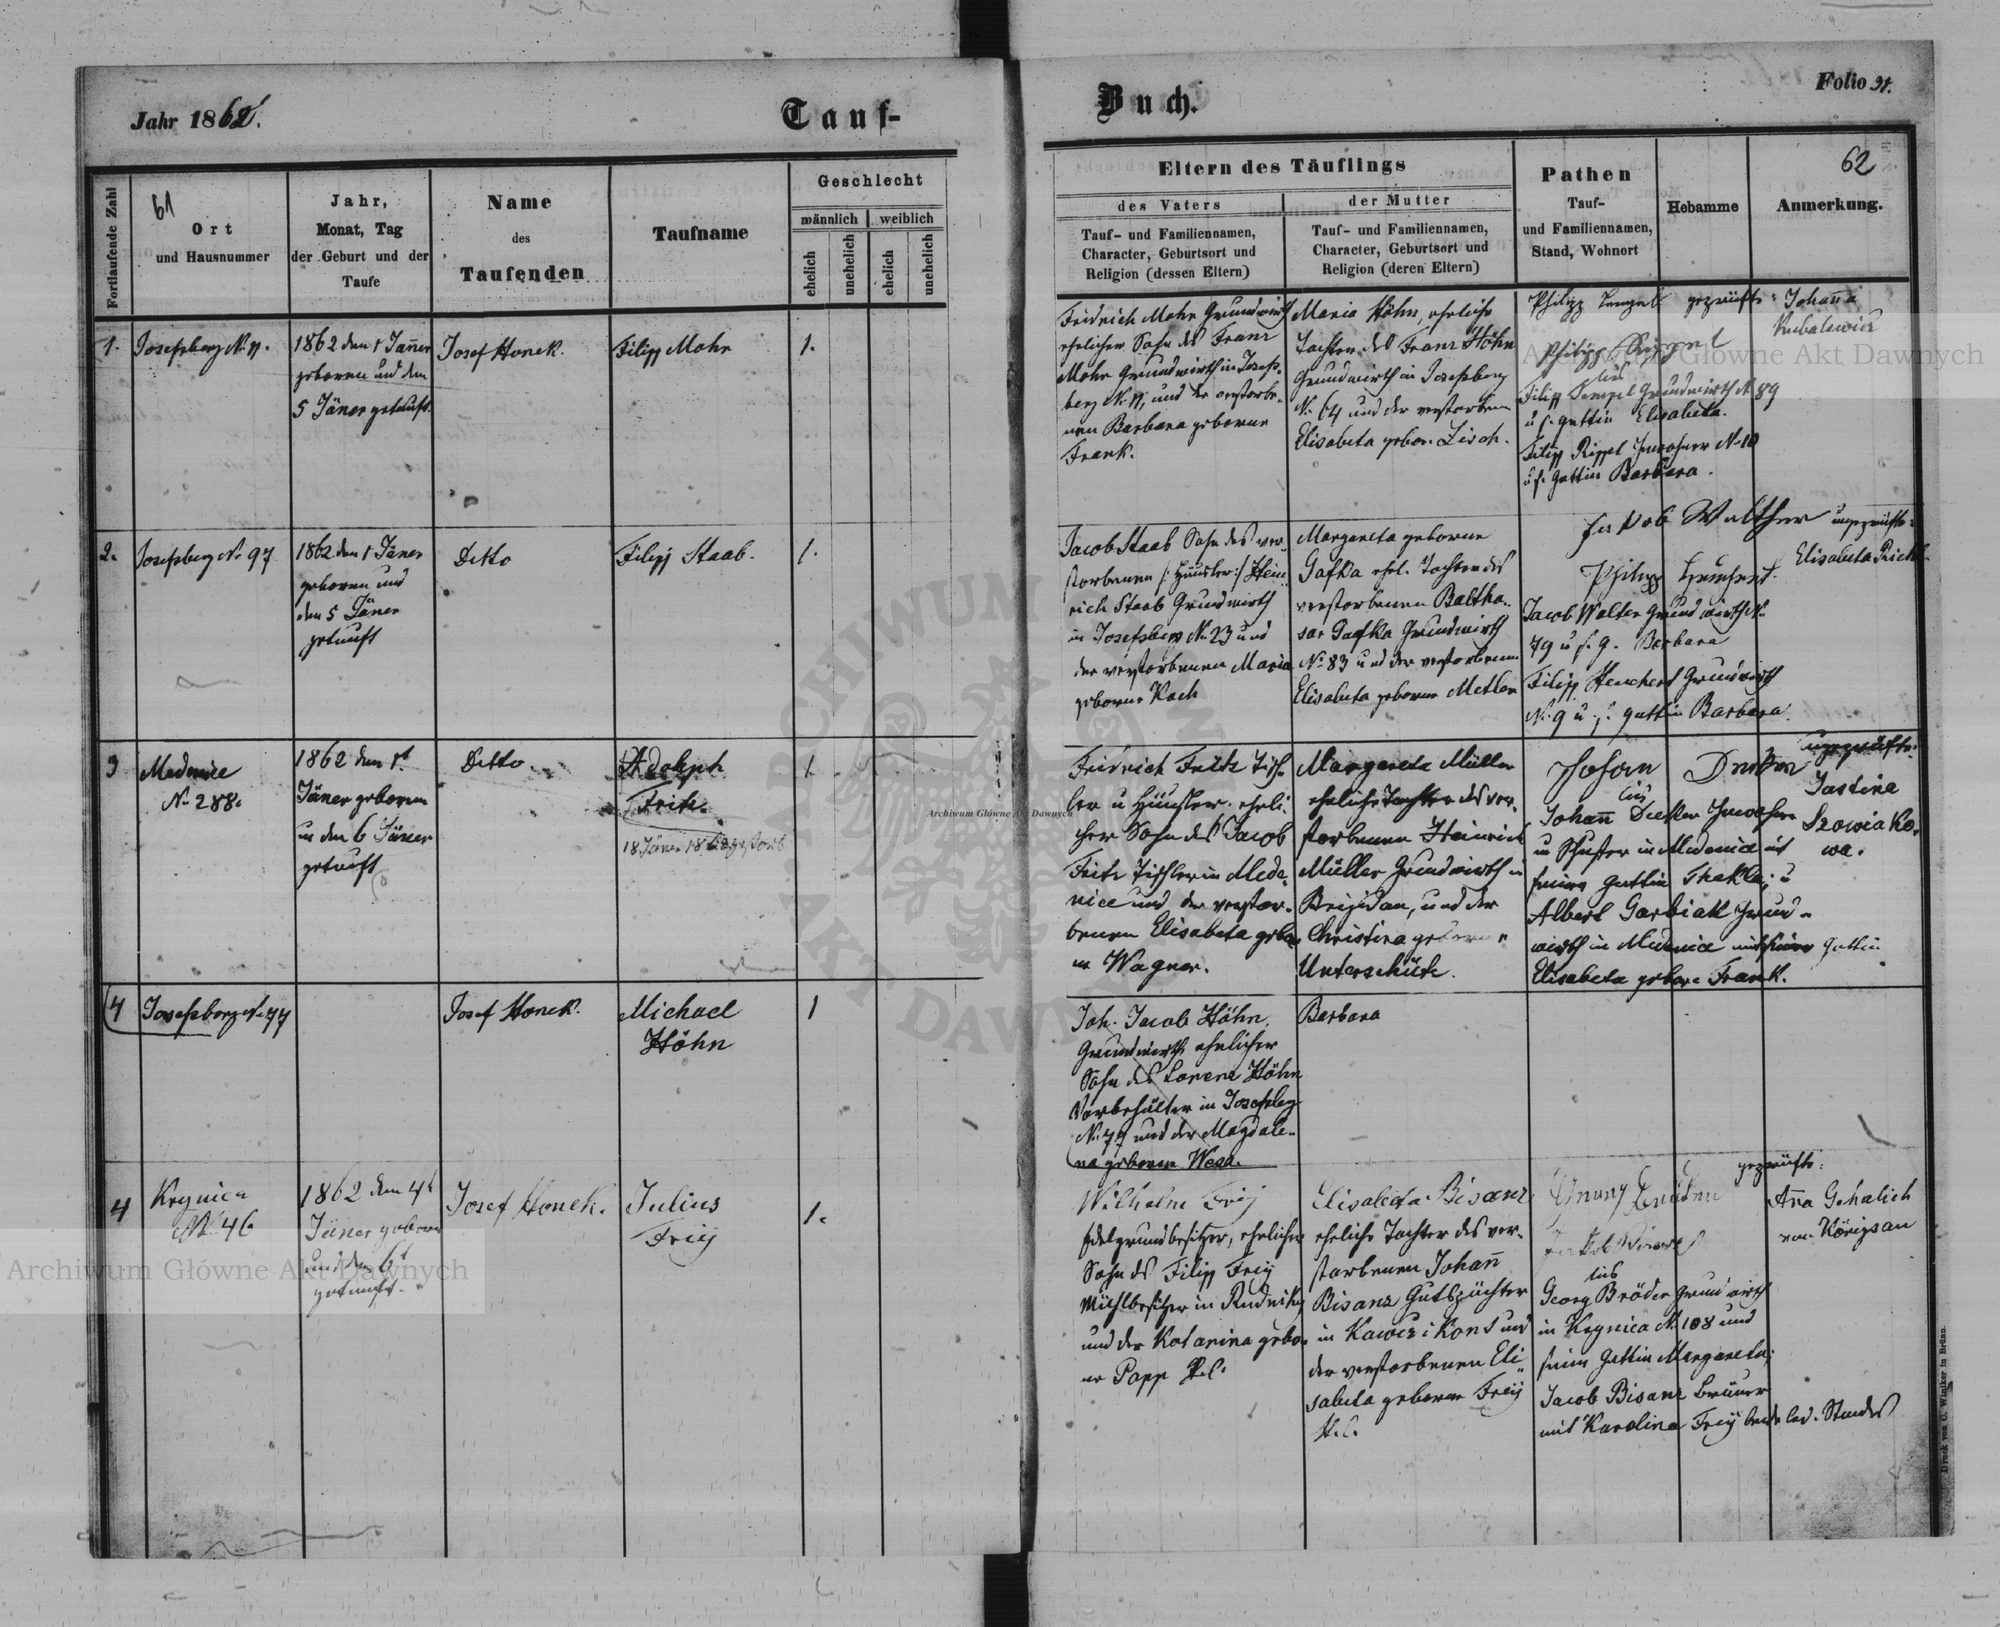 Jahr 1862.
Tauf-
Buch.
Folio 31.
61
62
Fortlaufende Zahl
Ort
und Hausnummer
Jahr,
Monat, Tag
der Geburt und der
Taufe
Name
des
Taufenden
Taufname
Geschlecht
männlich
weiblich
ehelich
unehelich
ehelich
unehelich
Eltern des Täuflings
des Vaters
Tauf- und Familiennamen,
Character, Geburtsort und
Religion (dessen Eltern)
der Mutter
Tauf- und Familiennamen,
Character, Geburtsort und
Religion (deren Eltern)
Pathen
Tauf-
und Familiennamen,
Stand, Wohnort
Hebamme
Anmerkung.
1.
Josefsberg N. 11.
1862 den 1 Jäner
geboren und den
5 Jäner getauft.
Josef Honek.
Filipp Mohr
1.
Fridrich Mohr Grundwirth
ehelicher Sohn des Franz
Mohr Grundwirth in Josefs-
berg N. 11, und der verstorbe-
nen Barbara geborne
Frank.
Maria Höhn, eheliche
Tochter des Franz Höhn
Grundwirth in Josefsberg
N. 64 und der verstorbenen
Elisabeta gebor. Zisch.
Philipp
geprüfte
Johanna
Philipp Rippel
Filipp Grundwirth N 89
u s. Gattin Elisabeta.
Filipp Rippel Inwohner N. 10
u s. Gattin Barbara.
2.
Josefsberg N. 97
1862 den 1 Jäner
geboren und
den 5 Jäner
getauft
Detto
Filipp Staab.
1.
Jacob Staab Sohn des ver-
storbenen /: Häusler :/ Hein-
rich Staab Grundwirth
in Josefsberg N. 23 und
der verstorbenen Maria
geborne Koch
Margareta geborne
Gafka ehel. Tochter des
verstorbenen Baltha-
sar Gafka Grundwirth
N. 83 und der verstorbenen
Elisabeta geborne Metler
Jakob Walther
ungeprüfte
Elisabeta
Philipp
Jacob Walter Grundwirth N.
79 u s. g. Barbara
Filipp Grundwirth
N. 9 u. s. Gattin Barbara.
3
Medenice
N. 288.
1862 den 1t
Jäner geboren
u den 6 Jäner
getauft
Detto
Adolph
Fritz.
18 Jäner
1
Fridrich Fritz Tisch-
ler u Häusler. eheli-
cher Sohn des Jacob
Fritz Tischler in Mede-
nice und der verstor-
benen Elisabeta gebor-
ne Wagner.
Margareta Müller
eheliche Tochter des ver-
storbenen Heinrich
Müller Grundwirth in
Brigidau, und der
Christina geborne
Unterschütz.
Johann
ungeprüfte
Justina
Johann Inwohner
u Schuster in Medenice mit
seiner Gattin Thekla; u
Albert Garbiak Grund-
wirth in Medenice mit seiner Gattin
Elisabeta geborne Frank.
4
Josefsberg N. 77
Josef Honek.
Michael
Höhn
1
Joh. Jacob Höhn,
Grundwirth ehelicher
Sohn des Lorenz Höhn
Vorbehälter in Josefsberg
N. 77 und der Magdale-
na geborne
Barbara
4
Krynica
N. 46
1862 den 4t
Jäner geboren
und den 6t
getauft.
Josef Honek.
Julius
Freÿ
1.
Wilhelm Freÿ
Edelgrundbesitzer, ehelicher
Sohn des Filipp Freÿ
Mühlbesitzer in Rudniky
und der Katarina gebor-
ne Popp H. C.
Elisabeta Bisanz
eheliche Tochter des ver-
storbenen Johann
Bisanz Gutspächter
in und
der verstorbenen Eli-
sabeta geborne Freÿ
H. C.
geprüfte
Anna Gehalich
von Königsau
Jakob Bisanz
Georg Bröder Grundwirth
in Krynica N. 108 und
seine Gattin Margareta;
Jacob Bisanz
mit Karolina Freÿ beide led. Standes
Druck von C. Winiker in Brünn.
Archiwum Główne Akt Dawnych
Archiwum Główne Akt Dawnych
Archiwum Główne Akt Dawnych